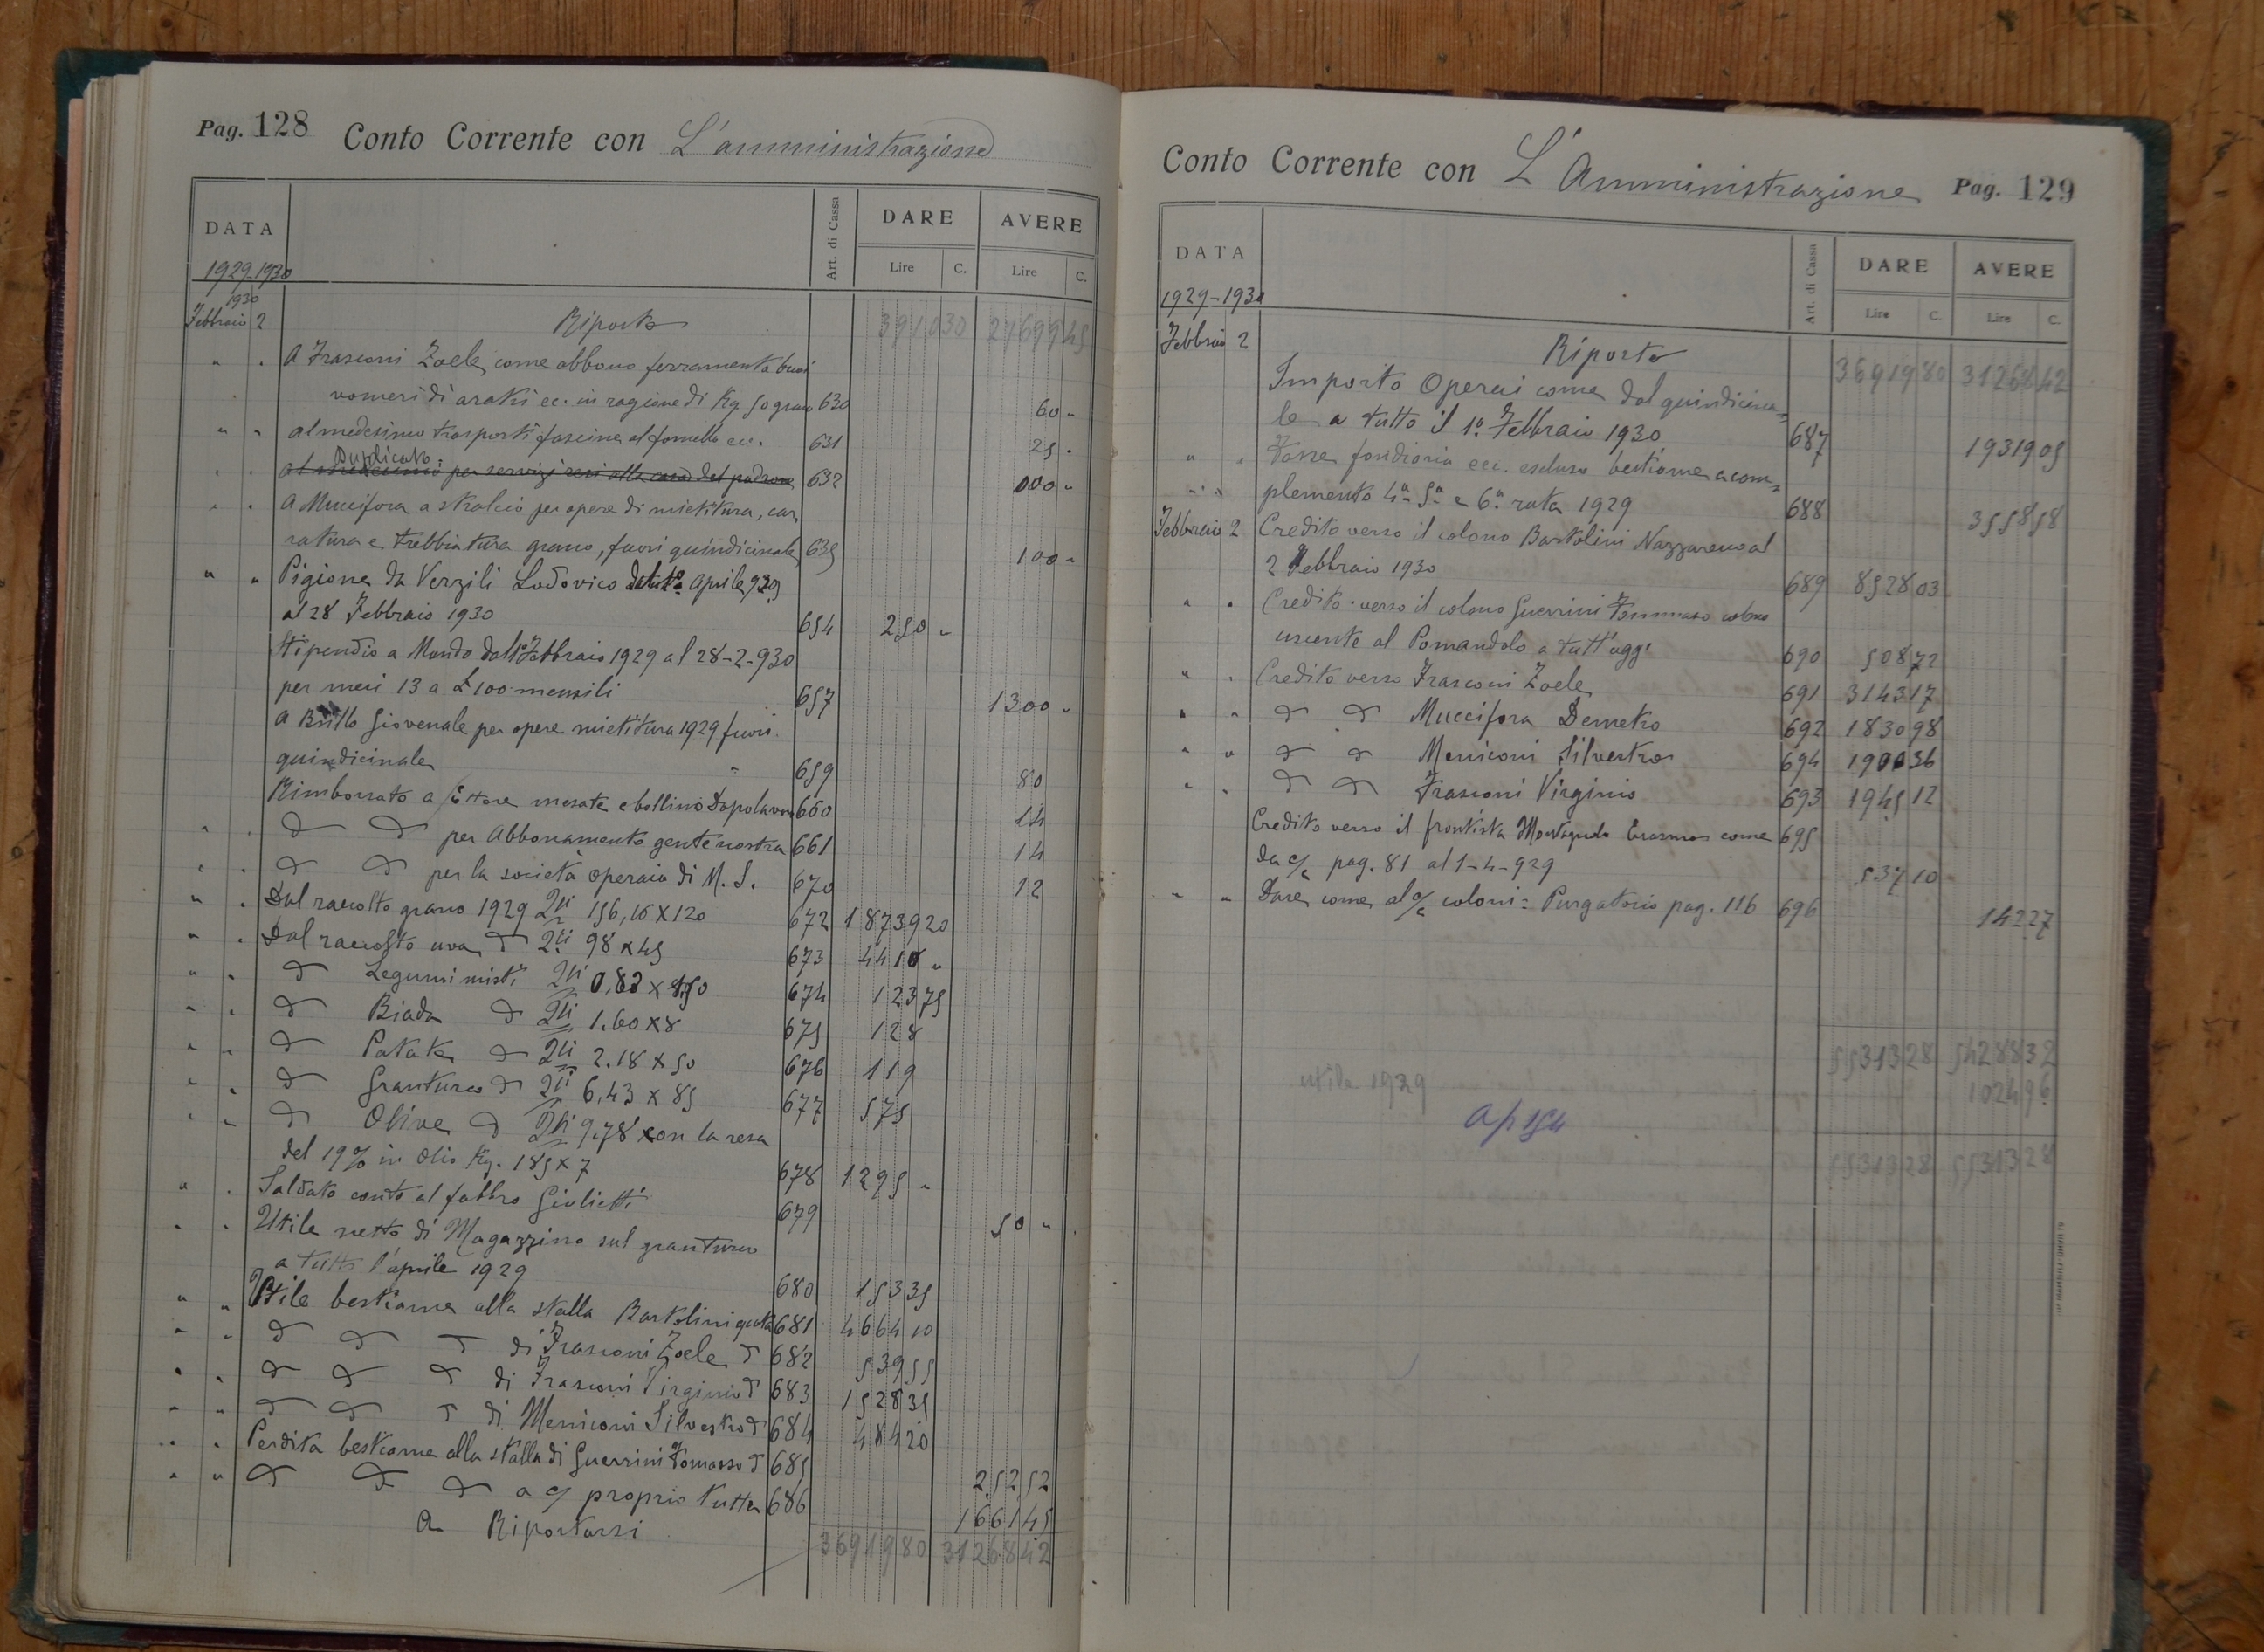 Pag. 128 Conto Corrente con L'amministrazione
DATA Art. di Cassa DARE AVERE
Lire C. Lire C.
1929-1930
1930
Febbraio 2 Riporto 3910 30 27699 45
" " A Frasconi Zoele, come abbono ferramenta buoi
vomeri di aratri ec. in ragione di Kg. 50 grano 630 60 "
" " al medesimo trasporti fascine al fornello ecc. 631 25 "
Duplicato
" " al medesimo per servizi resi alla casa del padrone 632 000 "
" " A Muccifora a stralcio per opere di mietitura, car,
ratura e trebbiatura grano, fuori quindicinale 635 100 "
" " Pigione da Verzili Lodovico dal 1° Aprile 929
al 28 Febbraio 1930 654 250 "
Stipendio a Mondo dall'1° Febbraio 1929 al 28-2-930
per mesi 13 a £ 100 mensili 657 1300 "
A Brillo Giovenale per opere mietitura 1929 fuori
quindicinale " 659 80
Rimborsato a Ettore mesate e bollino Dopolavoro 660 14
" " D D per Abbonamento gente nostra 661 14
" " D D per la società operaia di M. S. 670 12
" " Dal raccolto grano 1929 Qli 156,16 X 120 672 18739 20
" " Dal raccolto uva D Qli 98 x 45 673 4410 "
" " D Legumi misti Qli 0.82 x 150 674 123 75
" " D Biada D Qli 1.60 x 8 675 128
" " D Patate D Qli 2.18 x 50 676 119
" " D Granturco D Qli 6,43 x 85 677 575
" " D Olive D Qli 9.78 con la resa
del 19% in olio Kg. 185 x 7 678 1295 "
" " Saldato conto al fabbro Giulietti 679 50 "
" " Utile netto di Magazzino sul granturco
a tutto l'aprile 1929 680 153 35
" " Utile bestiame alla stalla Bartolini quota 681 4664 10
" " D D D di Frasconi Zoele D 682 539 55
" " D D D di Frasconi Virginio D 683 1528 35
" " D D D di Meniconi Silvestro D 684 484 20
" " Perdita bestiame alla stalla di Guerrini Tomasso D 685 252 52
" " D D D a c/ proprio tutta 686 1661 45
A Riportarsi 36919 80 31268 42
Conto Corrente con L'Amministrazione Pag. 129
DATA Art. di Cassa DARE AVERE
Lire C. Lire C.
1929-1930
Febbraio 2 Riporto 36919 80 31268 42
Importo Operai come dal quindicina=
le a tutto il 1° Febbraio 1930 687 19319 05
" " Tasse fondiaria ecc. escluso bestiame a com=
" " plemento 4ª 5ª e 6ª rata 1929 688 3558 58
Febbraio 2 Credito verso il colono Bartolini Nazzareno al
2 Febbraio 1930 689 8528 03
" " Credito verso il colono Guerrini Tommaso colono
uscente al Pomandolo a tutt'oggi 690 508 72
" " Credito verso Frasconi Zoele 691 3143 17
" " D D Muccifora Demetro 692 1830 98
" " D D Meniconi Silvestro 694 1900 36
" " D D Frasconi Virginio 693 1945 12
Credito verso il frontista Montagnola Erasmos come 695
da c/c pag. 81 al 1-4-929 537 10
" " Dare come al c/c coloni: Purgatorio pag. 116 696 142 27
55313 28 54288 32
utile 1929 1024 96
a p 154
55313 28 55313 28